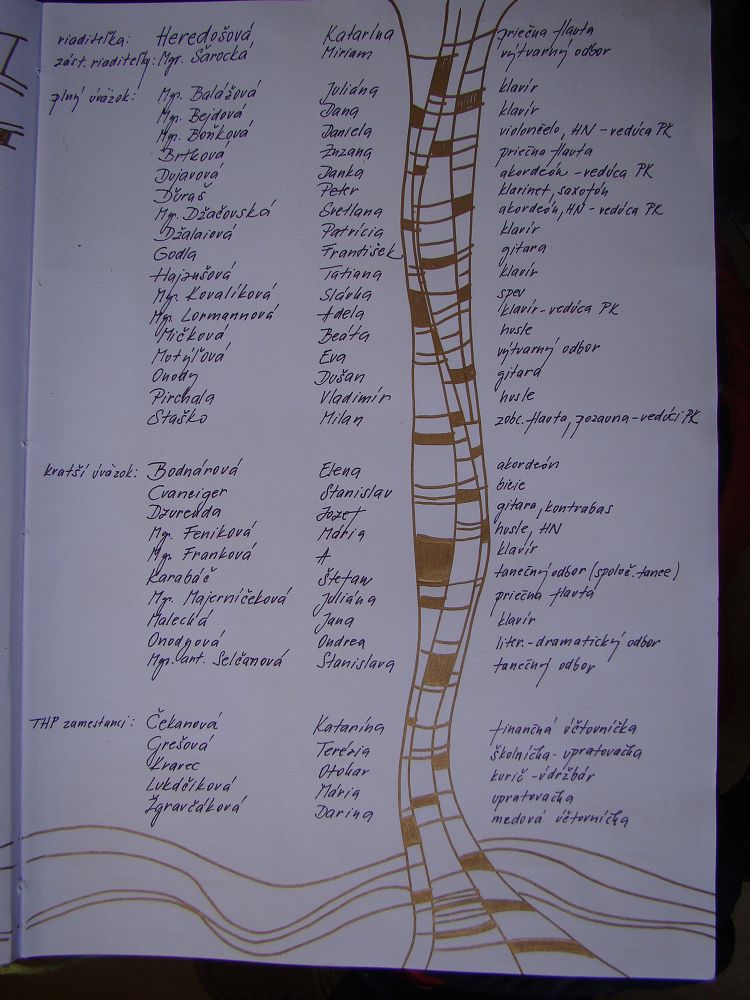 riaditeľka: Heredošová Katarína priečna flauta
zást. riaditeľky: Mgr. Šarocká Miriam výtvarný odbor
plný úväzok: Mgr. Balážová Juliána klavír
Mgr. Bejdová Dana klavír
Mgr. Boňková Daniela violončelo, HN - vedúca PK
Brtková Zuzana priečna flauta
Dujavová Danka akordeón - vedúca PK
Ďuraš Peter klarinet, saxofón
Mgr. Džačovská Svetlana akordeón, HN - vedúca PK
Džalaiová Patrícia klavír
Godla František gitara
Hajzušová Tatiana klavír
Mgr. Kovalíková Slávka spev
Mgr. Lormannová Adela klavír - vedúca PK
Mičková Beáta husle
Motýľová Eva výtvarný odbor
Onody Dušan gitara
Pirchala Vladimír husle
Staško Milan zobc. flauta, pozauna - vedúci PK
kratší úväzok: Bodnárová Elena akordeón
Cvaneiger Stanislav bicie
Dzurenda Jozef gitara, kontrabas
Mgr. Feniková Mária husle, HN
Mgr. Franková A klavír
Karabáč Štefan tanečný odbor (spoloč. tance)
Mgr. Majerníčeková Juliána priečna flauta
Malecká Jana klavír
Onodyová Ondrea liter.-dramatický odbor
Mgr. art. Selčanová Stanislava tanečný odbor
THP zamestanci: Čekanová Katarína finančná účtovníčka
Grešová Terézia školníčka - upratovačka
Kravec Otokar kurič - údržbár
Lukáčiková Mária upratovačka
Žgravčáková Darina medová účtovníčka